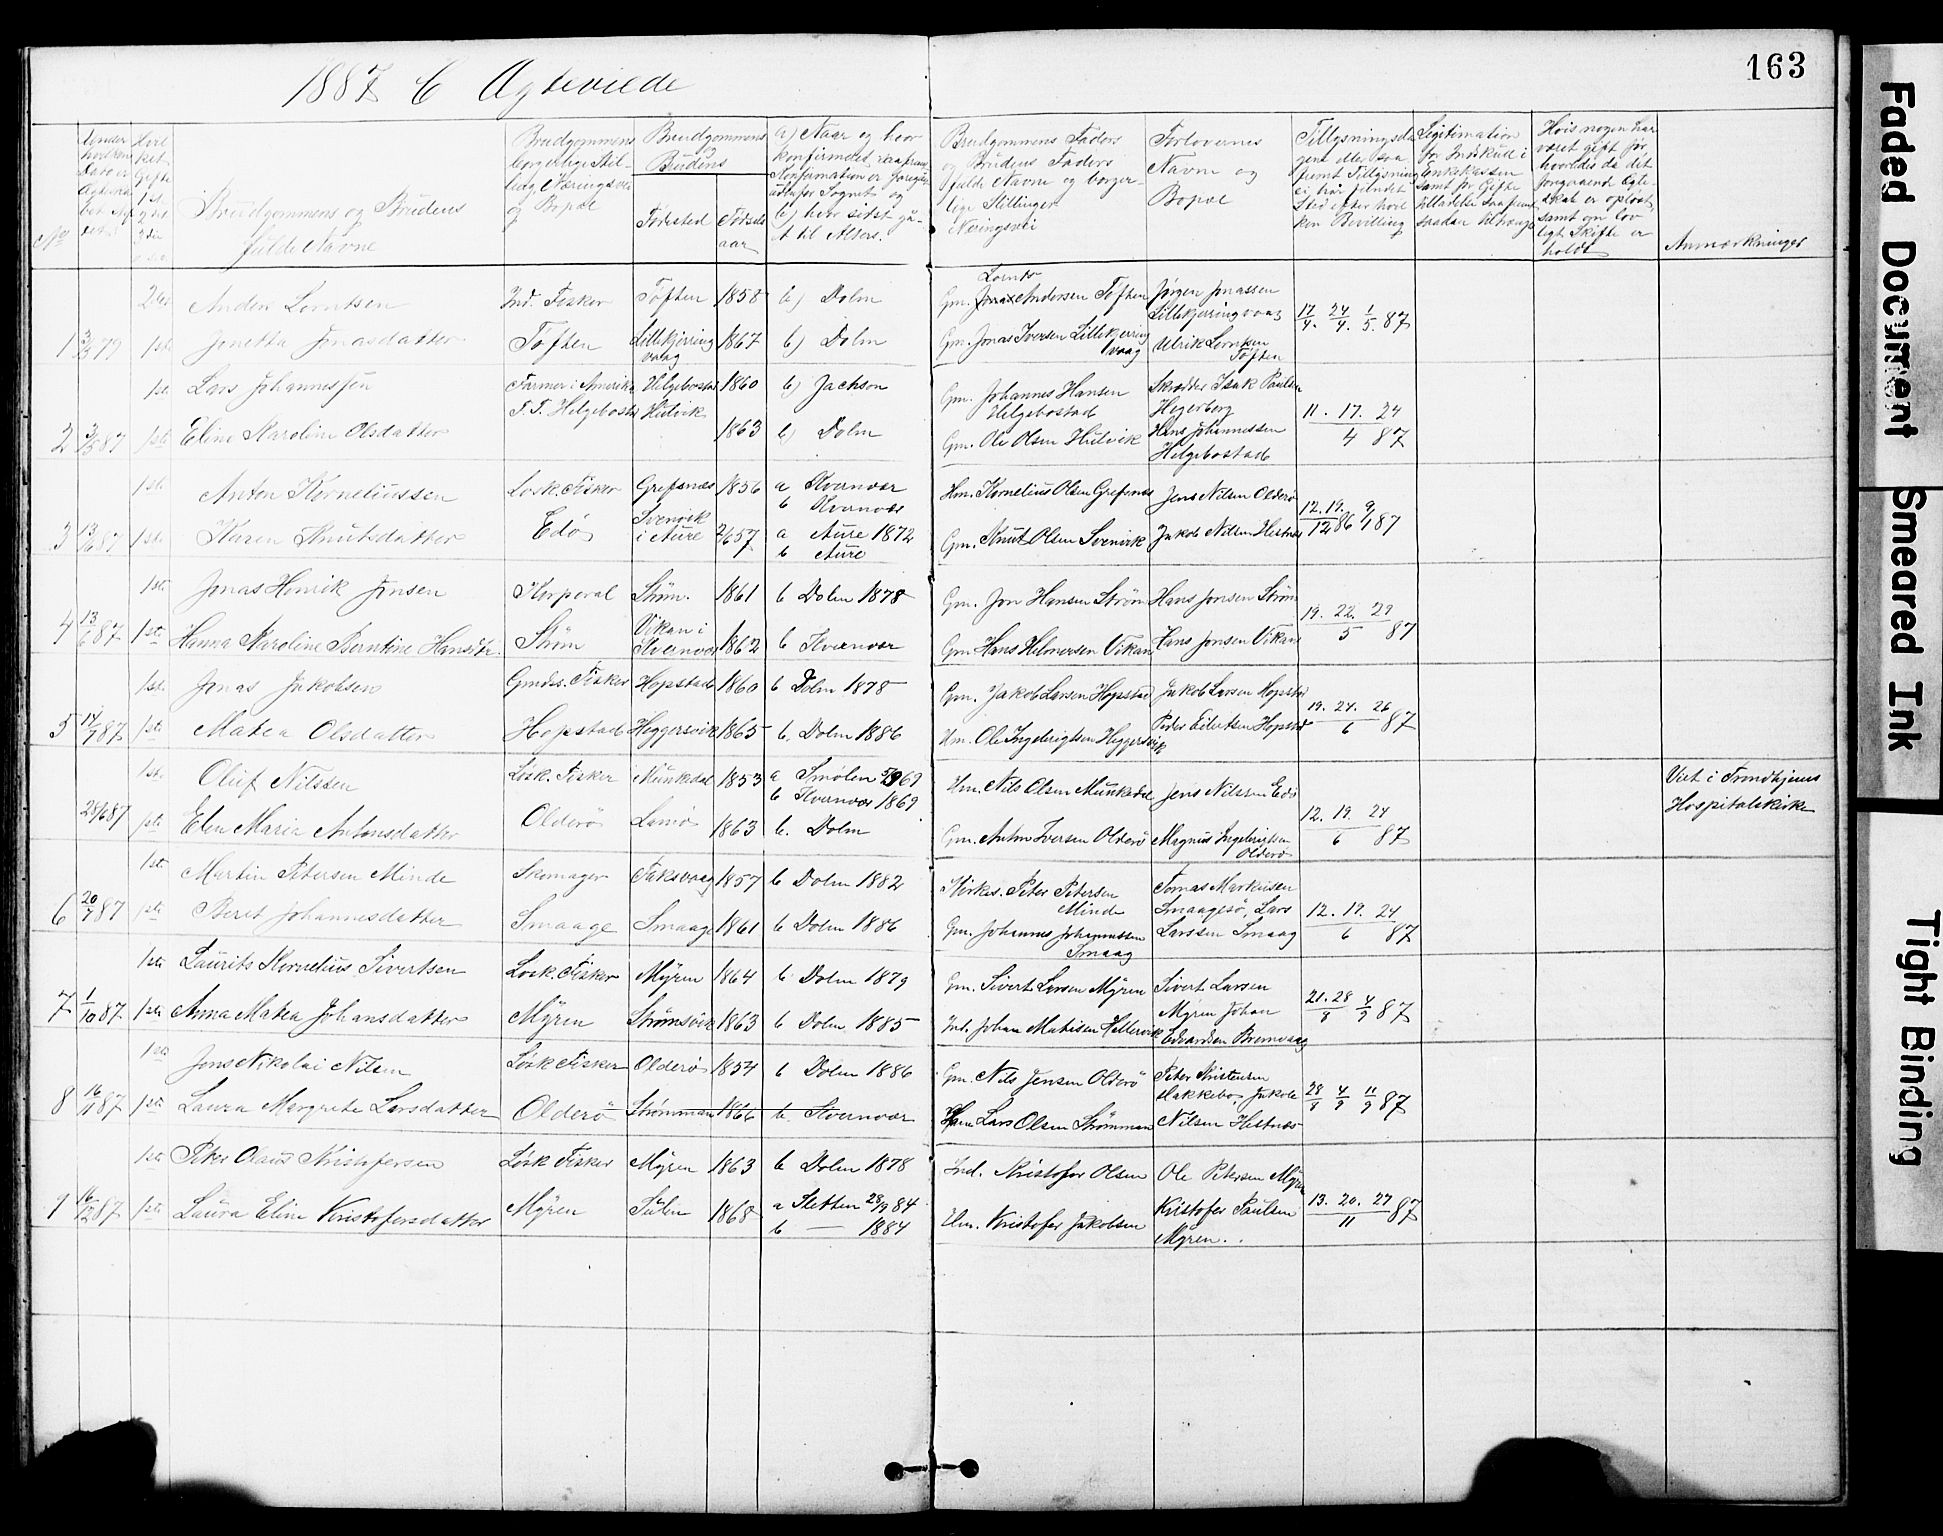 163
1887 C Ægteviede
No
Brudgommens og Brudens
fulde Navne
Brudgommens
borgerlige Stil-
ling Næringsvei
og Bopæl
Brudgommens
og
Brudens
Fødested
Fødsels
aar
a) Naar og hvor
konfirmeret
b) hvor sidst gaa-
et til Alters.
Brudgommens Faders
og Brudens Faders
fulde Navne og borger-
lige Stillinger
Næringsvei
Forlovernes
Navne og
Bopæl
Legitimation
for Indskud i
Enkekassen
samt for Gifte
Hvis nogen har
været gift før,
hvorledes da det
foregaaende Ægte-
skab er opløst,
samt om lov
ligt Skifte er
holdt
Anmærkninger
1
2den Anders Lorntsen Ind. Fisker Toften 1858 b) Dolm
1ste Jonetta Jonasdatter Toften Lillekjerring
vaag 1867 b) Dolm
Lornts
Gm. Andersen Toften
Gm. Jonas Iversen Lillekjerring
vaag
Jørgen Jonassen
Lillekjerringvaag
Ulrik Lorntsen
Toften
17/4. 24/4. 1/5 87
2 87
1ste Lars Johannessen Farmer i Amerika Helgebostad 1860 b) Jackson
T.T. Helgebostad Hutvik
1ste Eline Karoline Olsdatter 1863 b) Dolm
Gm. Johannes Hansen
Helgebostad
Gm. Ole Olsen Hutvik
Skrædder Isak Paulsen
Hegerberg
Hans Johannessen
Helgebostad
11. 17. 24
4 87
3 13/6 87
1ste Anton Korneliussen Losk. Fisker Grefsnæs 1856 a Kvernvær
b Kvernvær
1ste Karen Knutsdatter Edø Svenvik
i Aure 57 a Aure 1872
b Aure
Hm. Kornelius Olsen Grefsnæs
Gm. Knut Olsen Svenvik
Jens Nilsen Olderø
Jakob Nilsen Hestnæs
12. 19.
12 86 9/1 87
4 13/6 87
1ste Jonas Henrik Jonsen Korporal Strøm. 1861 b Dolm 1878
1ste Hanna Karoline Berntine Hansdtr. Strøm Vikan i
Kvernvær 1862 b Kvernvær
Gm. Jon Hansen Strøm
Gm Hans Helmersen Vikan
Hans Jonsen Strøm
Hans Jonsen Vikan
19. 22. 29
5 87
5 14/7 87
1ste Jonas Jakobsen Gmdss. Fisker Hopstad 1860 b Dolm 1878
1ste Matea Olsdatter Hopstad Heggersvik 1865 b. Dolm 1886
Gm. Jakob Larsen Hopstad
Hm. Ole Ingebrigtsen Heggersvik
Jakob Larsen Hopstad
Peder Eilertsen Hopstad
19. 24. 26
6 87
28/6 87
1ste Oluf Nilssen Losk. Fisker Munkdal 1853 a Smølen 69
b Kvernvær 1869
1ste Elen Maria Antonsdatter Olderø 1863 b. Dolm
Hm. Nils Olsen Munkdal
Gm. Anton Iversen Olderø
Jens Nilssen Edø
Magnus Ingebrigtsen
Olderø
12. 19. 24
6 87
Viet i Trondhjems
Hospitalskirke
6 20/7 87
1ste Martin Petersen Minde Skomager Faksvaag 1857 b Dolm 1882
1ste Beret Johannesdatter Smaage Smaage 1861 b Dolm 1886
Kirkes. Peter Petersen
Minde
Gm. Johannes Johannessen
Smaag
Tomas Markusen
Smaagesø, Lars
Larssen Smaag
12. 19. 24
6 87
7 1/10 87
1ste Laurits Kornelius Sivertsen Losk. Fisker Myren 1864 b Dolm 1879
1ste Anna Matea Johansdatter Myren Strømsvik 1863 b Dolm 1885
Gm. Sivert Larsen Myren
Ind. Johan Matisen Hellervik
Sivert Larsen
Myren Johan
Edvardsen Bremvaag
21. 28
8 4/9 87
8 16/11 87
1ste Jens Nikolai Nilsen Løsk Fisker Olderø 1854 b Dolm 1886
1ste Laura Margrete Larsdatter Olderø Strømman 1866 b. Kvernvær
Gm. Nils Jensen Olderø
Hm Lars Olsen Strømman
Peter Kristensen
Hakkebo, Jakob
Nilsen Hestnæs
28/8 4/9 11/9 87
9 16/12 87
1ste Peter Olaus Kristofersen Løsk Fisker Myren 1863 b Dolm 1878
1ste Laura Eline Kristofersdatter Myren Sulen 1868 a Sletten 28/9 84
b — 1884
Ind. Kristofer Olsen
Hm. Kristofer Jakobsen
Ole Petersen Myren
Kristofer Paulsen
Myren.
13. 20. 27
11 87
Faded Document
Smeared Ink
Tight Binding